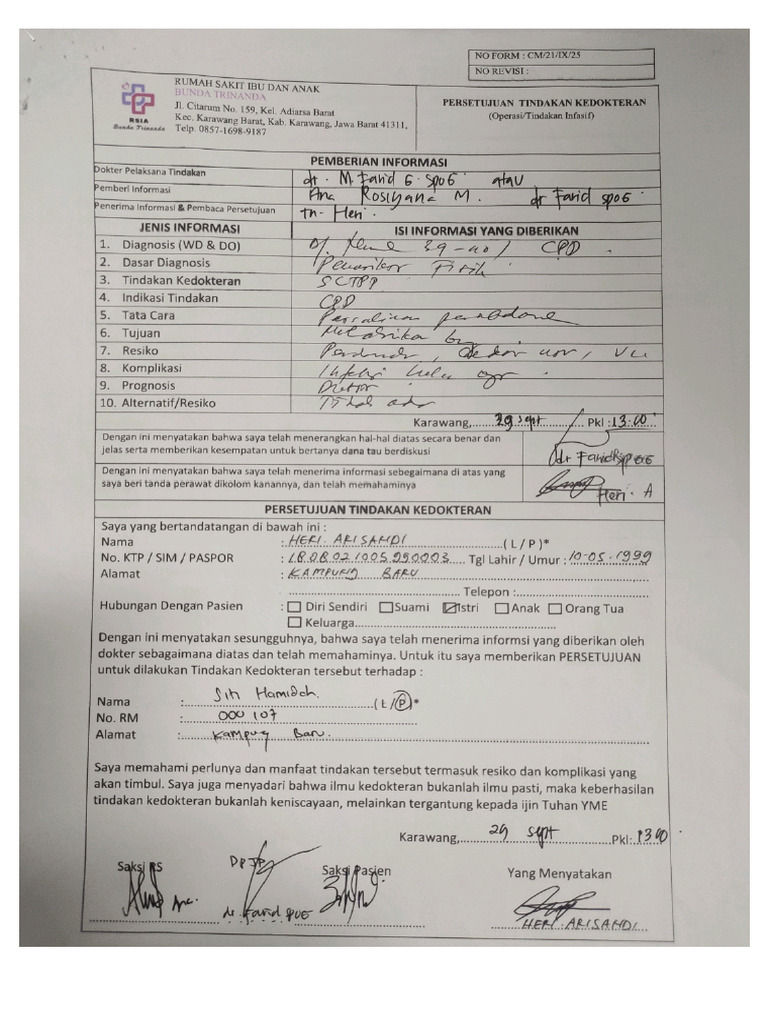 NO FORM : CM/21/IX/25
NO REVISI :
RUMAH SAKIT IBU DAN ANAK
BUNDA TRINANDA
Jl. Citarum No. 159, Kel. Adiarsa Barat
Kec. Karawang Barat, Kab. Karawang, Jawa Barat 41311,
Telp. 0857-1698-9187
RSIA
Bunda Trinanda
PERSETUJUAN TINDAKAN KEDOKTERAN
(Operasi/Tindakan Infasif)
PEMBERIAN INFORMASI
Dokter Pelaksana Tindakan dr. M. Farid G. SpOG atau
Pemberi Informasi Ana Rosiyana M. dr Farid SpOG
Penerima Informasi & Pembaca Persetujuan tn. Heri.
JENIS INFORMASI ISI INFORMASI YANG DIBERIKAN
1. Diagnosis (WD & DO) 39-40 CPD
2. Dasar Diagnosis Fisik
3. Tindakan Kedokteran SCTPP
4. Indikasi Tindakan CPD
5. Tata Cara Persalinan
6. Tujuan
7. Resiko
8. Komplikasi
9. Prognosis
10. Alternatif/Resiko
Karawang,.....29 sept.....Pkl :13:00
Dengan ini menyatakan bahwa saya telah menerangkan hal-hal diatas secara benar dan
jelas serta memberikan kesempatan untuk bertanya dana tau berdiskusi
dr Farid SpOG
Dengan ini menyatakan bahwa saya telah menerima informasi sebegaimana di atas yang
saya beri tanda perawat dikolom kanannya, dan telah memahaminya
Heri. A
PERSETUJUAN TINDAKAN KEDOKTERAN
Saya yang bertandatangan di bawah ini :
Nama : HERI ARISANDI ( L / P )*
No. KTP / SIM / PASPOR : 1808021005990003 Tgl Lahir / Umur : 10-05-1999
Alamat : KAMPUNG BARU
Telepon :
Hubungan Dengan Pasien : Diri Sendiri Suami Istri Anak Orang Tua
Keluarga
Dengan ini menyatakan sesungguhnya, bahwa saya telah menerima informsi yang diberikan oleh
dokter sebagaimana diatas dan telah memahaminya. Untuk itu saya memberikan PERSETUJUAN
untuk dilakukan Tindakan Kedokteran tersebut terhadap :
Nama : Siti Hamidah. ( L / P )*
No. RM : 000 107
Alamat : Kampug Baru.
Saya memahami perlunya dan manfaat tindakan tersebut termasuk resiko dan komplikasi yang
akan timbul. Saya juga menyadari bahwa ilmu kedokteran bukanlah ilmu pasti, maka keberhasilan
tindakan kedokteran bukanlah keniscayaan, melainkan tergantung kepada ijin Tuhan YME
Karawang, 29 sept Pkl: 13.00
Saksi RS DPJP Saksi Pasien Yang Menyatakan
Ana. dr. Farid SpOG HERI ARISANDI